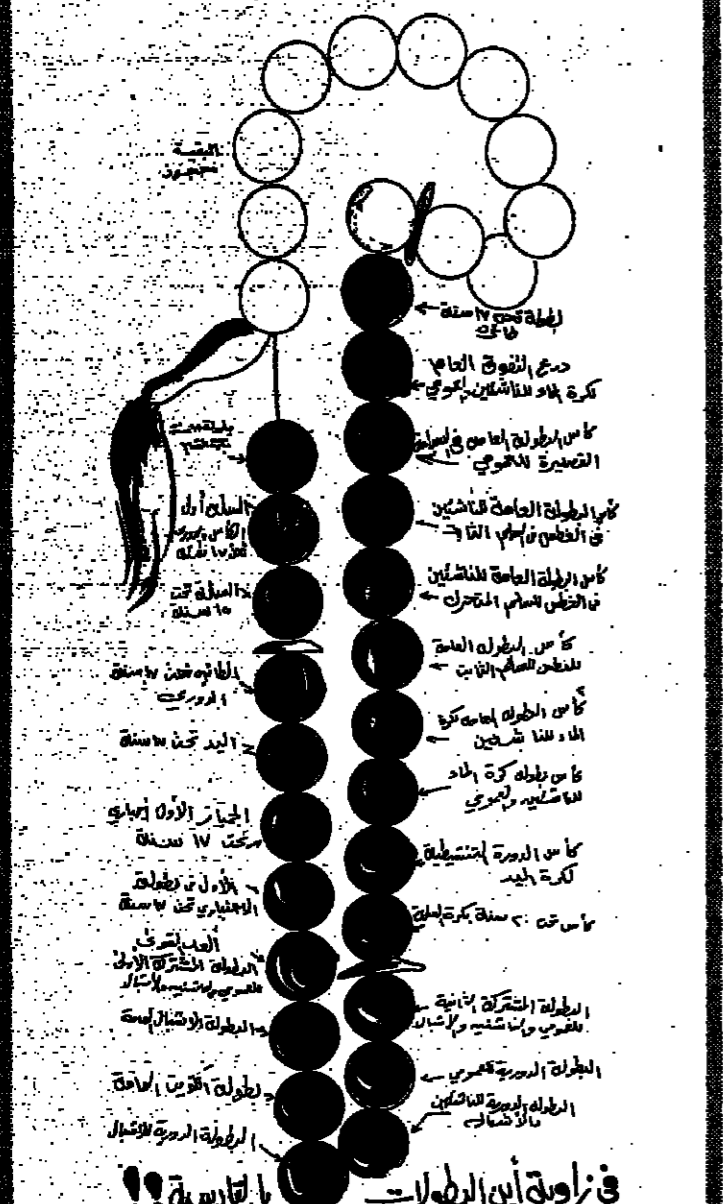 البقية
محجوز
لبطولة تحت ١٧ سنة
درع التفوق العام
لكرة الماء للناشئين والعمومي
كأس البطولة العامة في المسافة
القصيرة للعمومي
كأس البطولة العامة للناشئين
في الغطس السلم الثابت
كأس البطولة العامة للناشئين
في الغطس السلم المتحرك
كأس البطولة العامة
للغطس السلم الثابت
كأس البطولة العامة لكرة
الماء للناشئين
كأس بطولة كرة الماء
للناشئين والعمومي
كأس الدورة التنشيطية
لكرة اليد
كأس تحت ٢٠ سنة بكرة السلة
البطولة المشتركة الثانية
للعمومي والناشئين والأشبال
البطولة الدورية للعمومي
البطولة الدورية للناشئين
والأشبال
السلة أول
الكأس
تحت ١٧ سنة
السلة تحت
١٥ سنة
الطائرة تحت ١٧ سنة
الدوري
اليد تحت ١٧ سنة
الجمباز الأول إجباري
تحت ١٧ سنة
الأول في بطولة
الاختياري تحت ١٧ سنة
ألعاب القوى
البطولة المشتركة الأولى
للعمومي والناشئين والأشبال
البطولة الأشبال العامة
البطولة الدورية للأشبال
في زاوية أين البطولات يا لقادسية !!